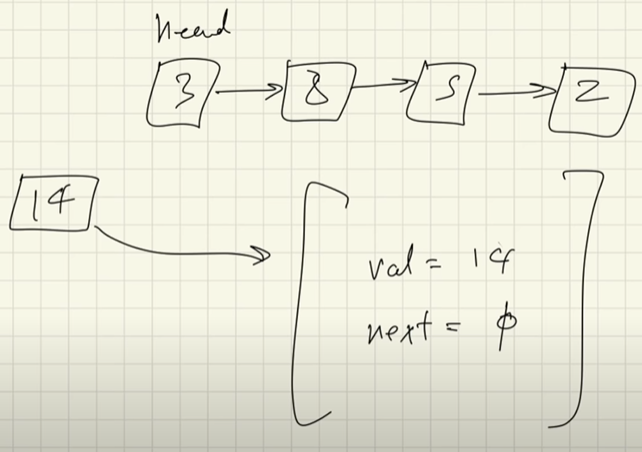 Head
3 → 8 → 5 → 2
14
val = 14
next = ϕ